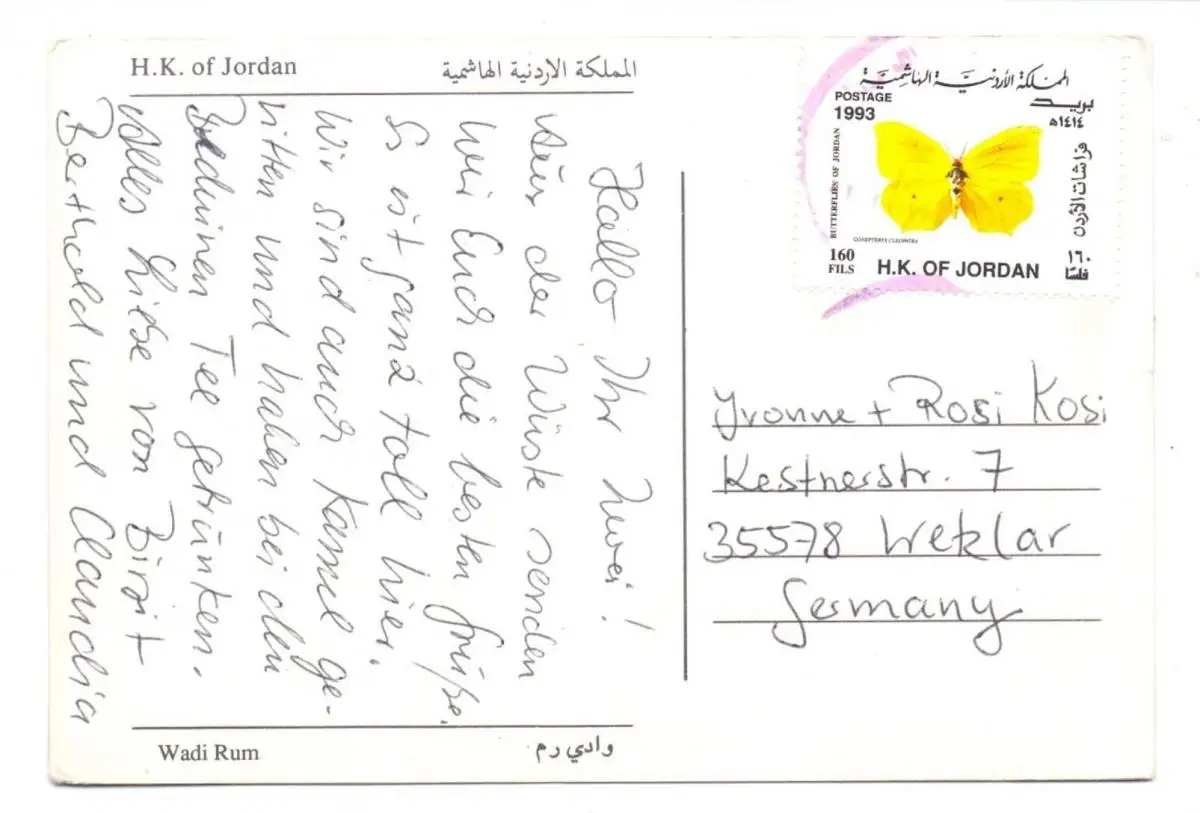 H.K. of Jordan
المملكة الاردنية الهاشمية
Hallo Ihr zwei!
Aus der Wüste senden
wir Euch die besten Grüße.
Es ist ganz toll hier.
Wir sind auch Kamel ge-
ritten und haben bei den
Beduinen Tee getrunken.
Alles Liebe von Birgit
Berthold und Claudia
Wadi Rum
وادي رم
المملكة الأردنية الهاشمية
POSTAGE
1993
بريد
١٤١٤هـ
BUTTERFLIES OF JORDAN
فراشات الأردن
GONEPTERYX CLEOPATRA
160
FILS
H.K. OF JORDAN
١٦٠
فلسًا
Yvonne + Rosi Kosi
Kestnerstr. 7
35578 Wetzlar
Germany